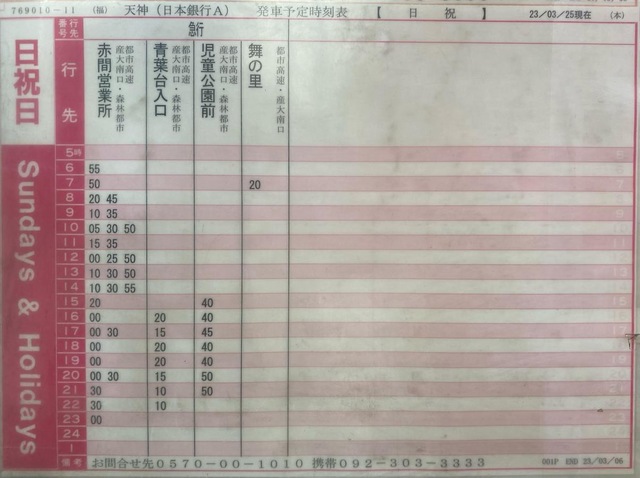 769010-11 (福) 天神(日本銀行A) 発車予定時刻表 【 日 祝 】 23/03/25現在 (本)
日祝日
Sundays & Holidays
行先番号
行先
赤間営業所 都市高速 産大南口・森林都市
青葉台入口 都市高速 産大南口・森林都市
児童公園前 都市高速 産大南口・森林都市
舞の里 都市高速・産大南口
5時
6 55
7 50 20
8 20 45
9 10 35
10 05 30 50
11 15 35
12 00 25 50
13 10 30 50
14 10 30 55
15 20 40
16 00 20 40
17 00 30 15 45
18 00 20 40
19 00 20 40
20 00 30 15 50
21 30 10 50
22 30 10
23 00
24
1
備考 お問合せ先0570-00-1010 携帯092-303-3333 001P END 23/03/06